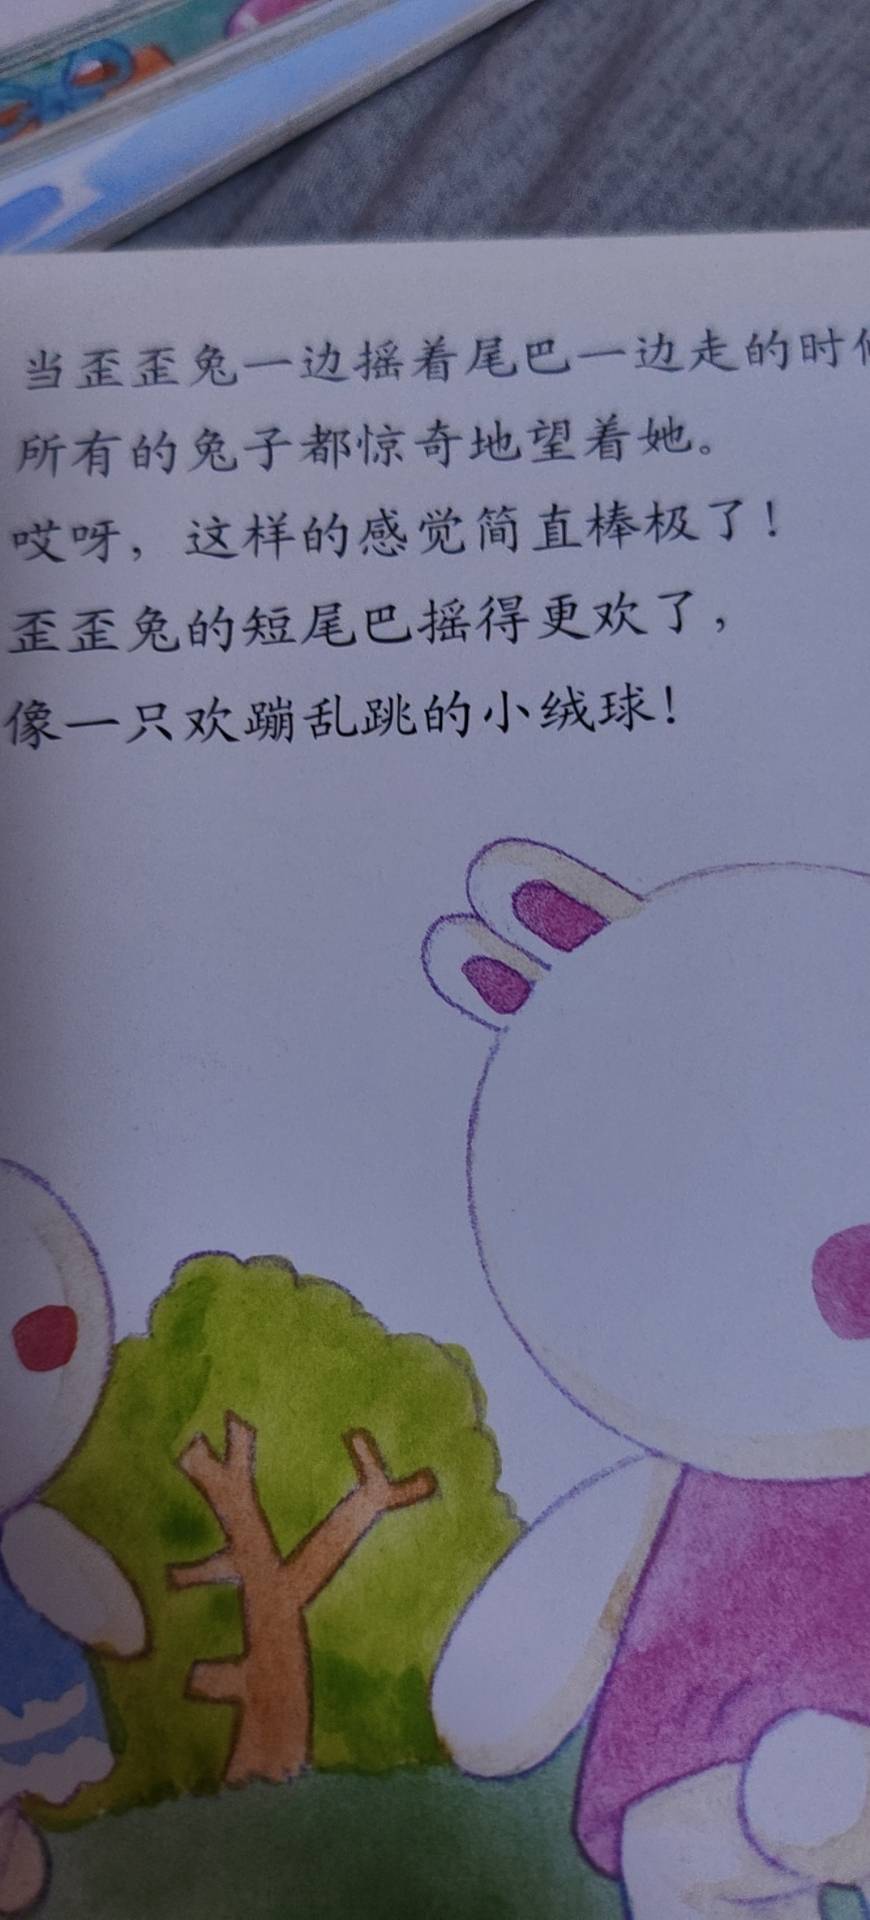 当歪歪兔一边摇着尾巴一边走的时候
所有的兔子都惊奇地望着她。
哎呀，这样的感觉简直棒极了！
歪歪兔的短尾巴摇得更欢了，
像一只欢蹦乱跳的小绒球！